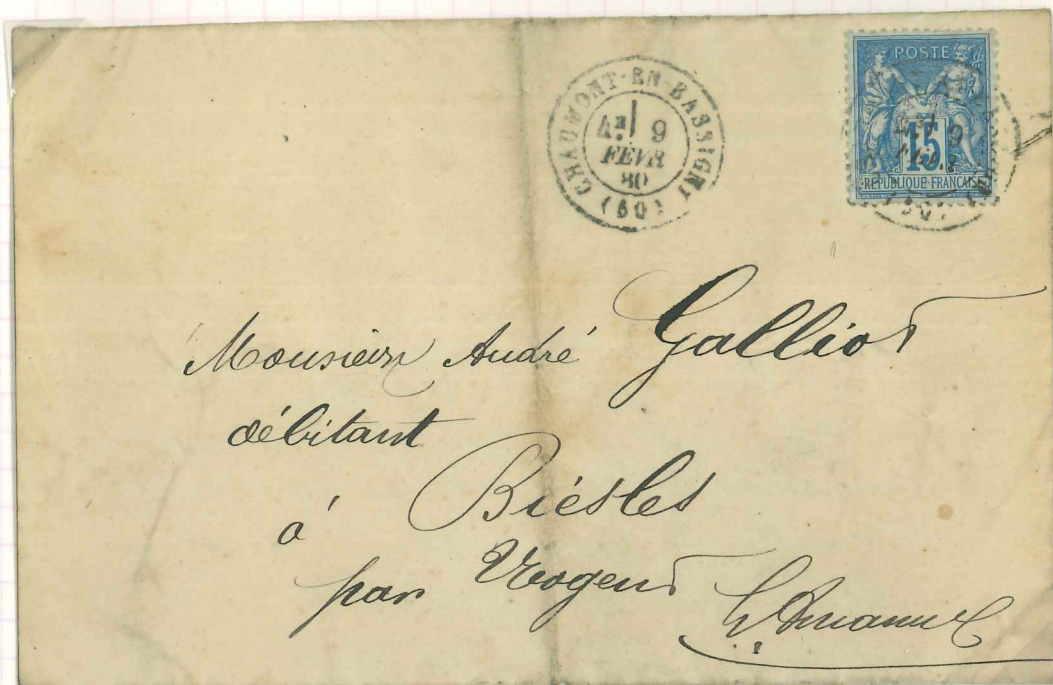 CHAUMONT-EN-BASSIGNY
9
FEVR
80
POSTE
15
REPUBLIQUE FRANCAISE
Monsieur André Galliot
débitant
à Biésles
par Nogent Hte Marne